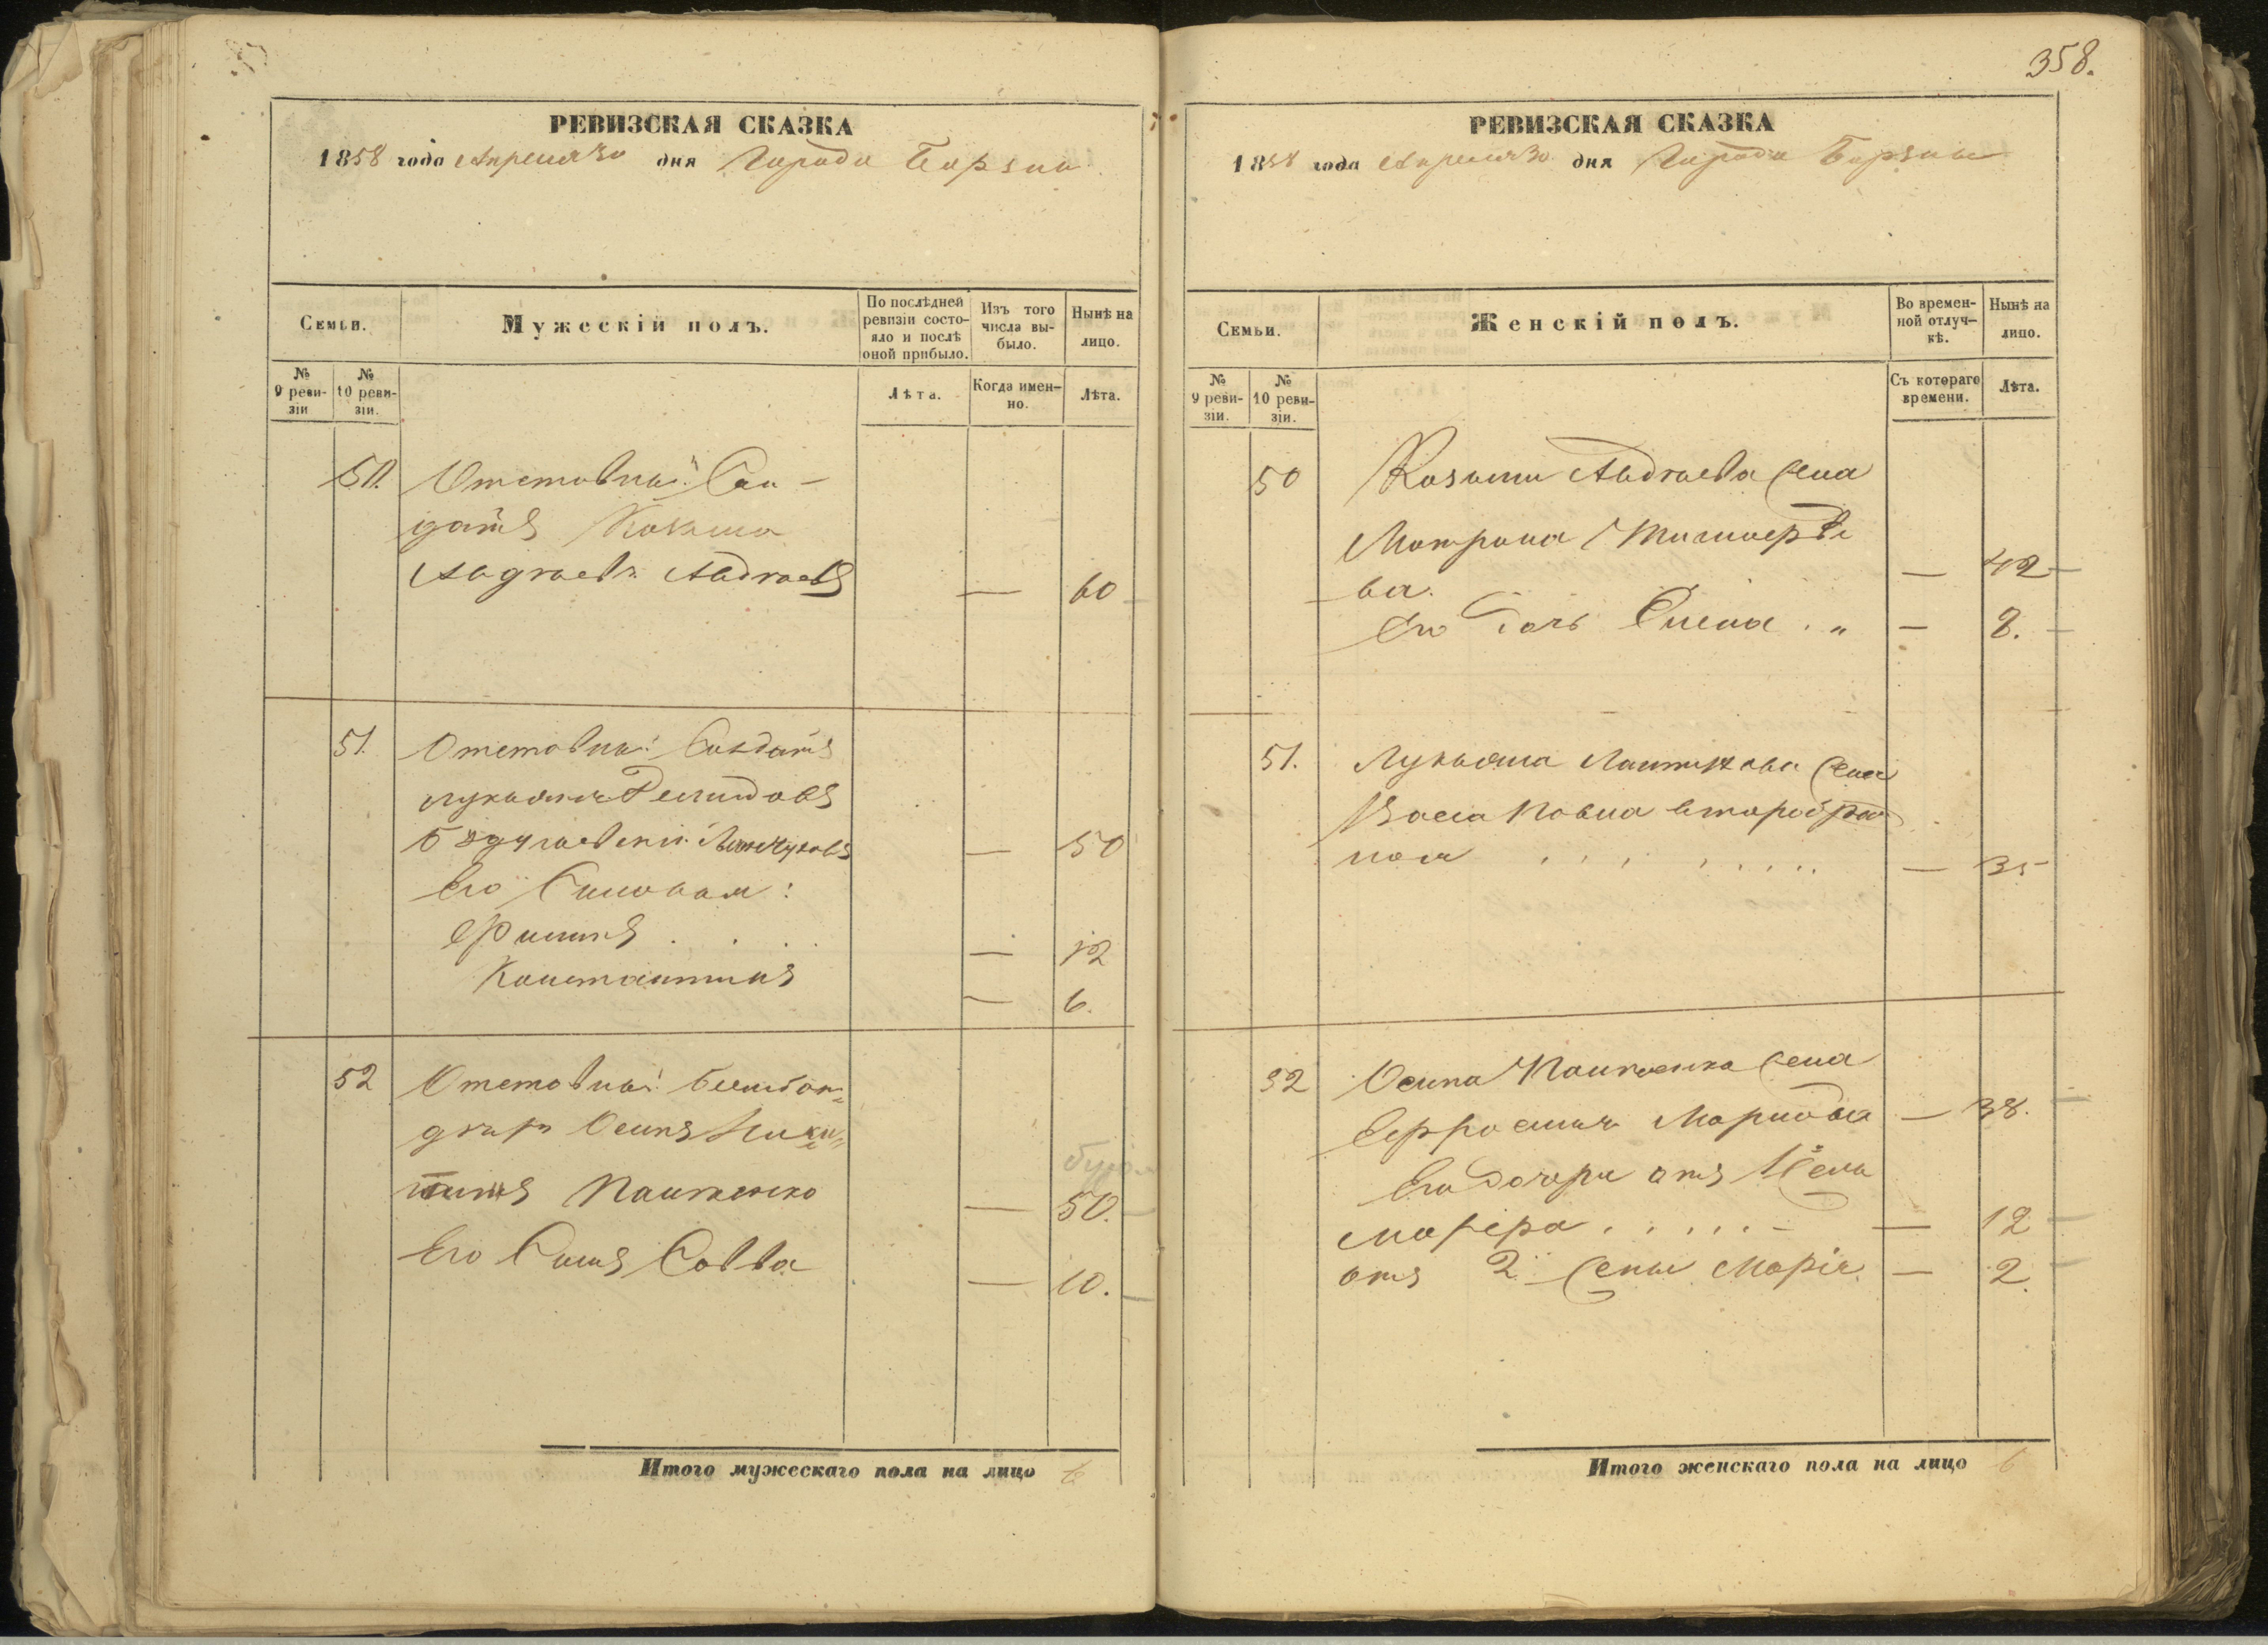 358.
РЕВИЗСКАЯ СКАЗКА
1858 года Апреля 30 дня Города Борзны
Семьи.
Мужескій полъ.
По послѣдней ревизіи состояло и послѣ оной прибыло.
Изъ того числа выбыло.
Нынѣ на лицо.
№ 9 ревизіи
№ 10 ревизіи.
Лѣта.
Когда именно.
Лѣта.
50. Отставный Сол-
датъ Козьма
Авдѣевъ Авдѣевъ — 60
51. Отставный Солдатъ
Лукьянъ Демидовъ
Его Сыновья:
Филипъ . . . — 12
Константинъ — 6.
52 Отставный
Осипъ Ники-
тинъ Пантенко — 50.
Его Сынъ Савва — 10.
Итого мужескаго пола на лицо 6
РЕВИЗСКАЯ СКАЗКА
1858 года Апреля 30 дня Города Борзны
Семьи.
Женскій полъ.
Во временной отлучкѣ.
Нынѣ на лицо.
№ 9 ревизіи.
№ 10 ревизіи.
Съ котораго времени.
Лѣта.
50 Козьмы Авдѣева жена
Матрона Тимофѣе
ва. — 42
Его дочь Елена . „ — 8.
51. Лукьяна жена
второбрач
ная . . . . . . . — 35
52 Осипа Пантенка жена
Ефросинья Маркова — 38.
Его дочери отъ 1й жены
Марфа . . . . . — 12
отъ 2й жены Марія. — 2.
Итого женскаго пола на лицо 6